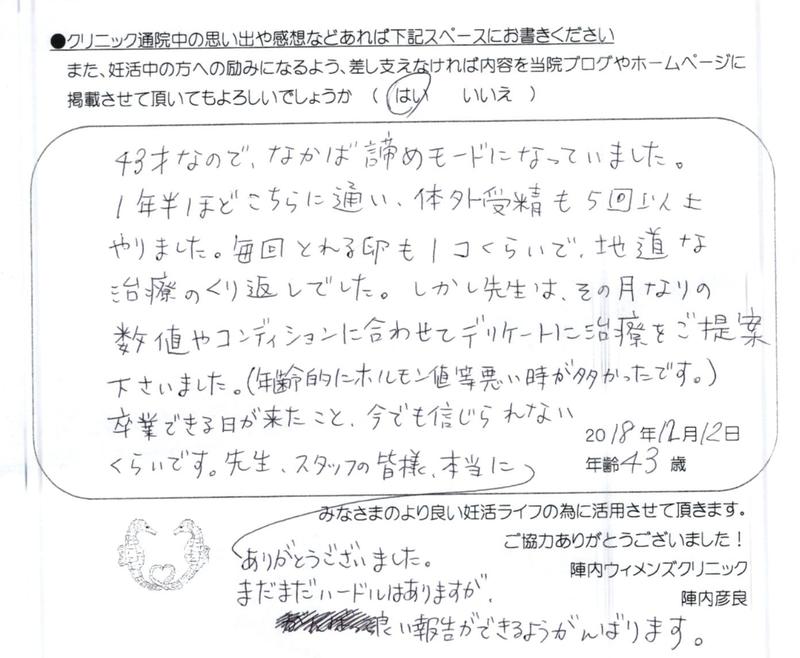 ●クリニック通院中の思い出や感想などあれば下記スペースにお書きください
また、妊活中の方への励みになるよう、差し支えなければ内容を当院ブログやホームページに
掲載させて頂いてもよろしいでしょうか （ はい　　いいえ ）
43才なので、なかば諦めモードになっていました。
1年半ほどこちらに通い、体外受精も5回以上
やりました。毎回とれる卵も1コくらいで、地道な
治療のくり返しでした。しかし先生は、その月なりの
数値やコンディションに合わせてデリケートに治療をご提案
下さいました。(年齢的にホルモン値等悪い時が多かったです。)
卒業できる日が来たこと、今でも信じられない
くらいです。先生、スタッフの皆様、本当に
2018年12月12日
年齢43歳
みなさまのより良い妊活ライフの為に活用させて頂きます。
ご協力ありがとうございました！
陣内ウィメンズクリニック
陣内彦良
ありがとうございました。
まだまだハードルはありますが、
良い報告ができるようがんばります。